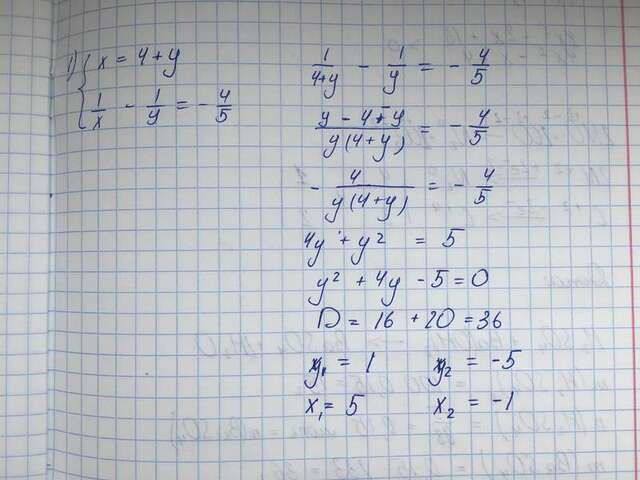 1) { x = 4 + y
1/x - 1/y = - 4/5
1/(4+y) - 1/y = - 4/5
(y - 4 - y)/(y(4+y)) = - 4/5
- 4/(y(4+y)) = - 4/5
4y + y² = 5
y² + 4y - 5 = 0
D = 16 + 20 = 36
y₁ = 1 y₂ = -5
x₁ = 5 x₂ = -1